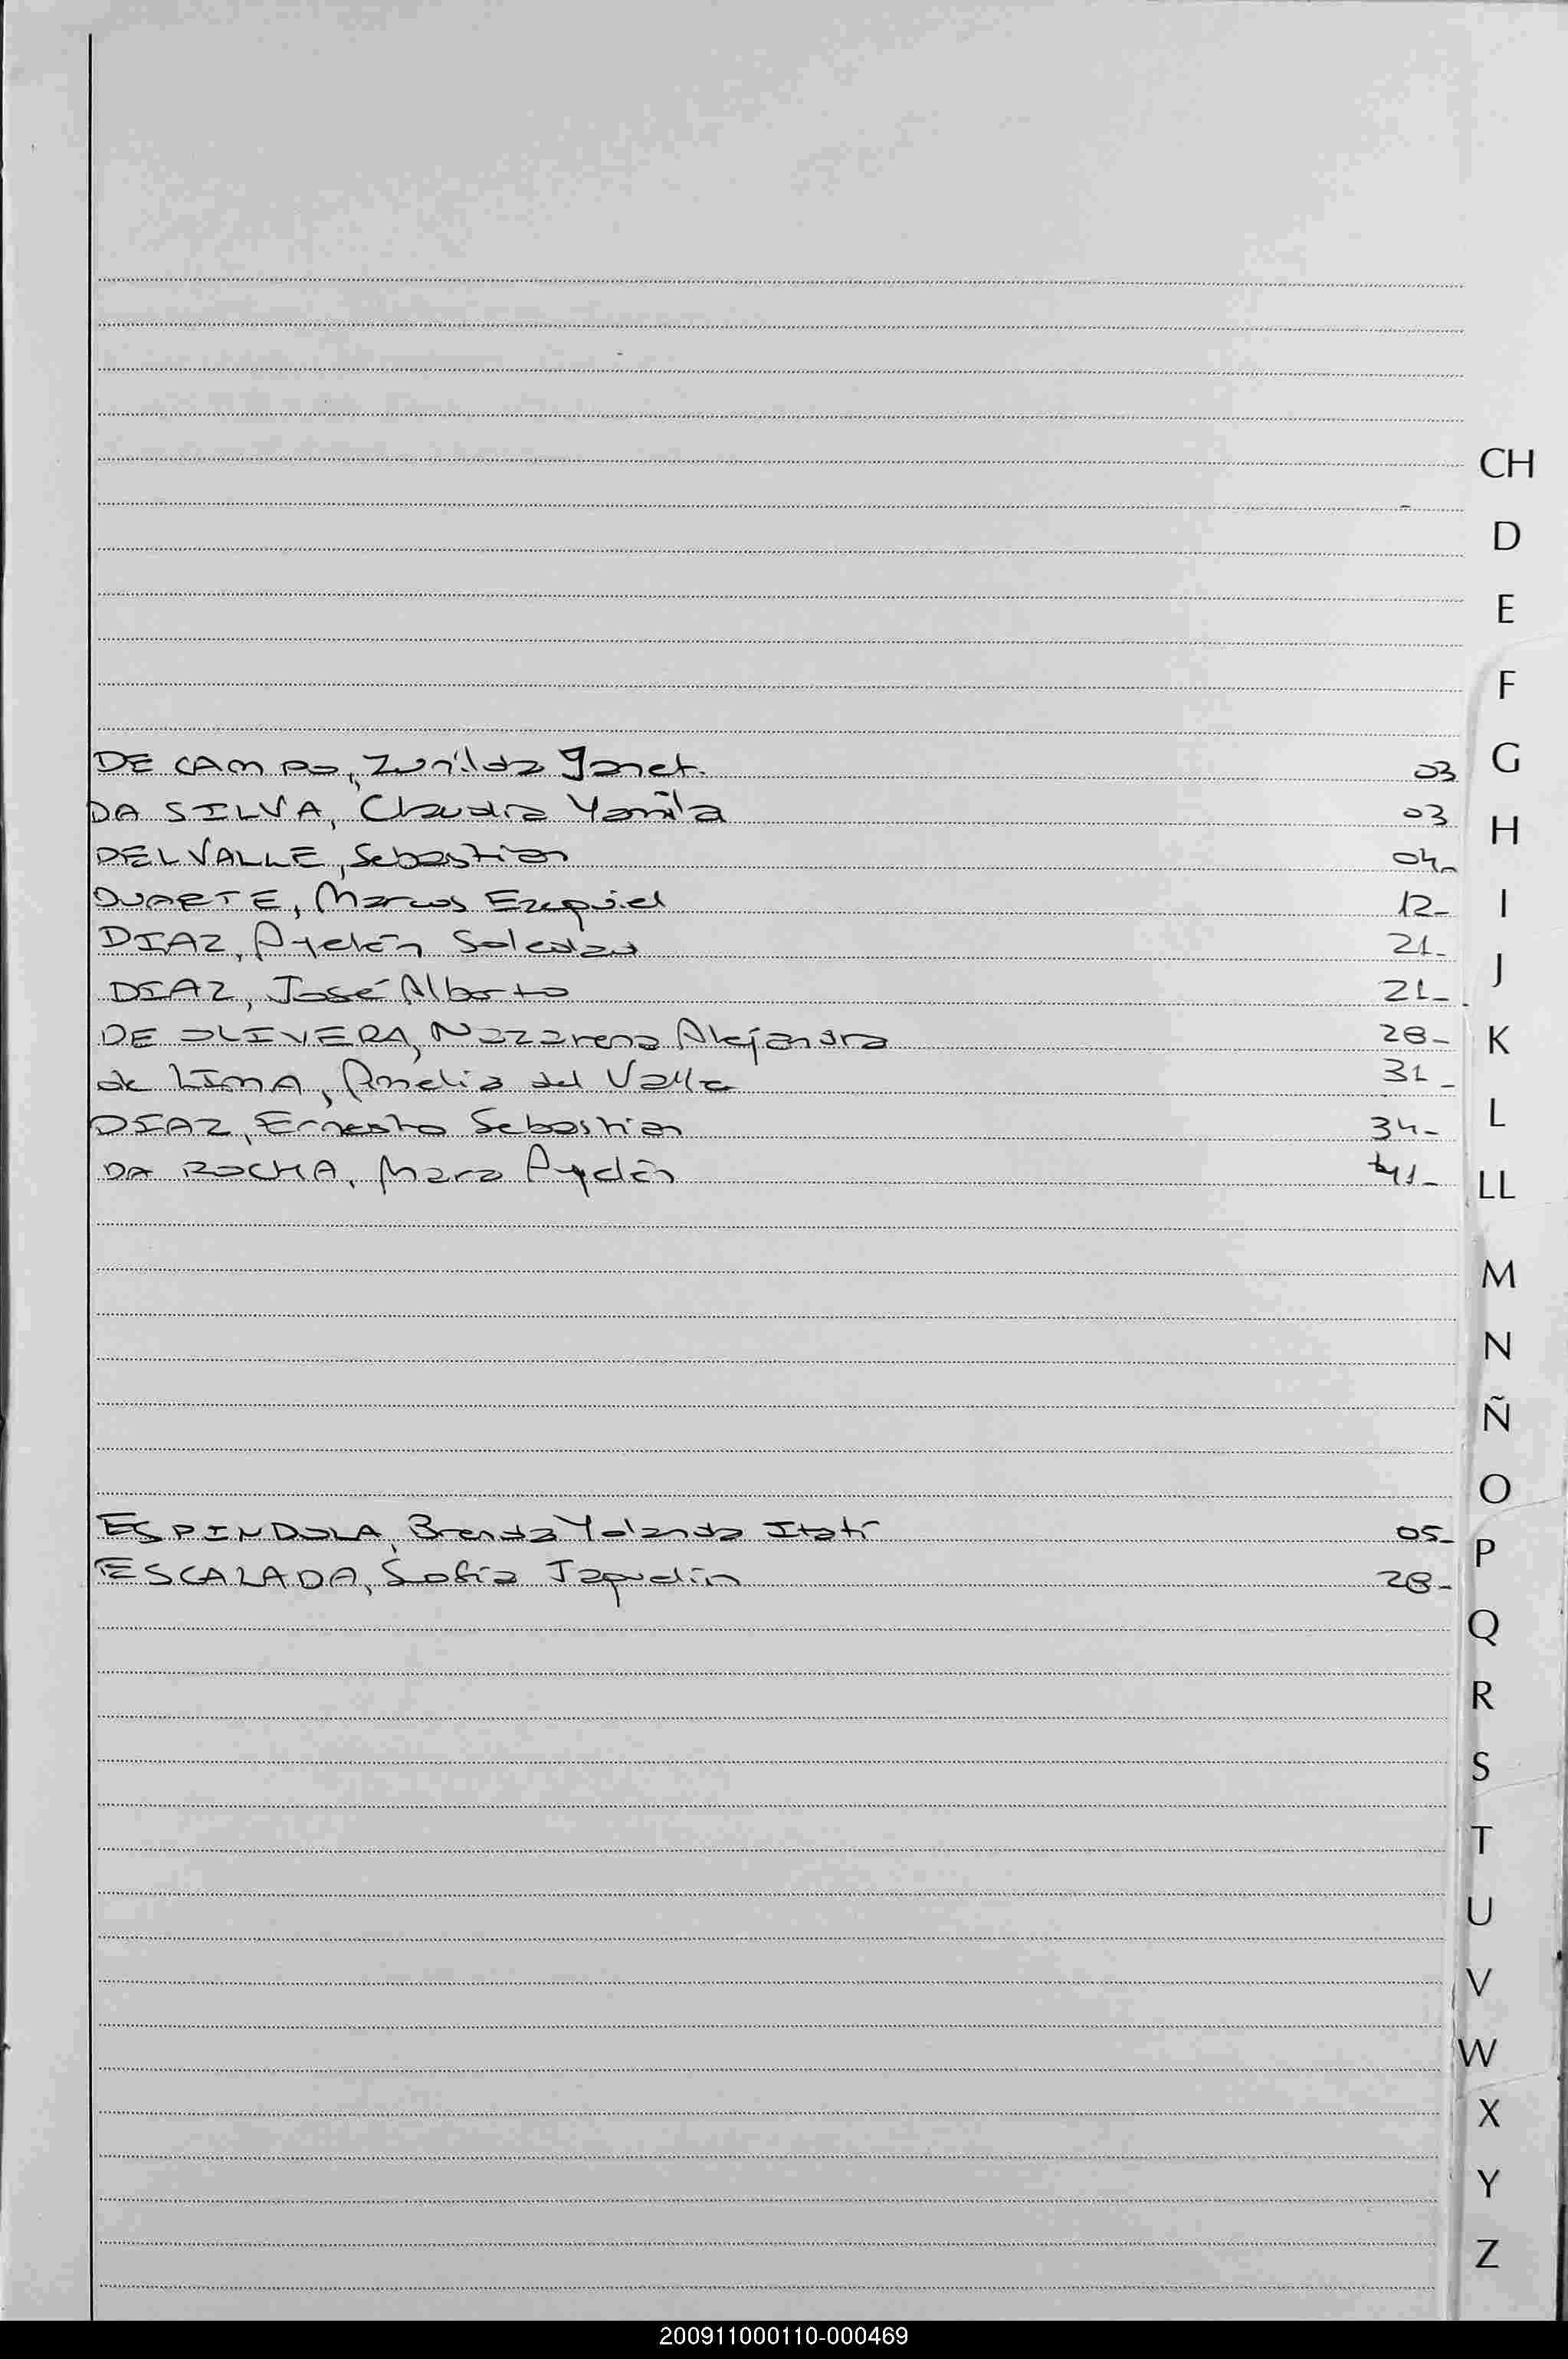 CH
D
E
F
DE CAMPO, Zunilda Janet. 03 G
DA SILVA, Claudia Yamila 03 H
DELVALLE, Sebastian 04-
DUARTE, Marcos Ezequiel 12- I
DIAZ, Ayelén Soledad 21- J
DIAZ, José Alberto 21-
DE OLIVERA, Nazarena Alejandra 28- K
de LIMA, Amelia del Valle 31-
DIAZ, Ernesto Sebastian 34- L
DA ROCHA, Mara Ayelén 41- LL
M
N
Ñ
O
ESPINDOLA, Brenda Yolanda Itatí 05- P
ESCALADA, Sofía Jaquelin 28-
Q
R
S
T
U
V
W
X
Y
Z
200911000110-000469